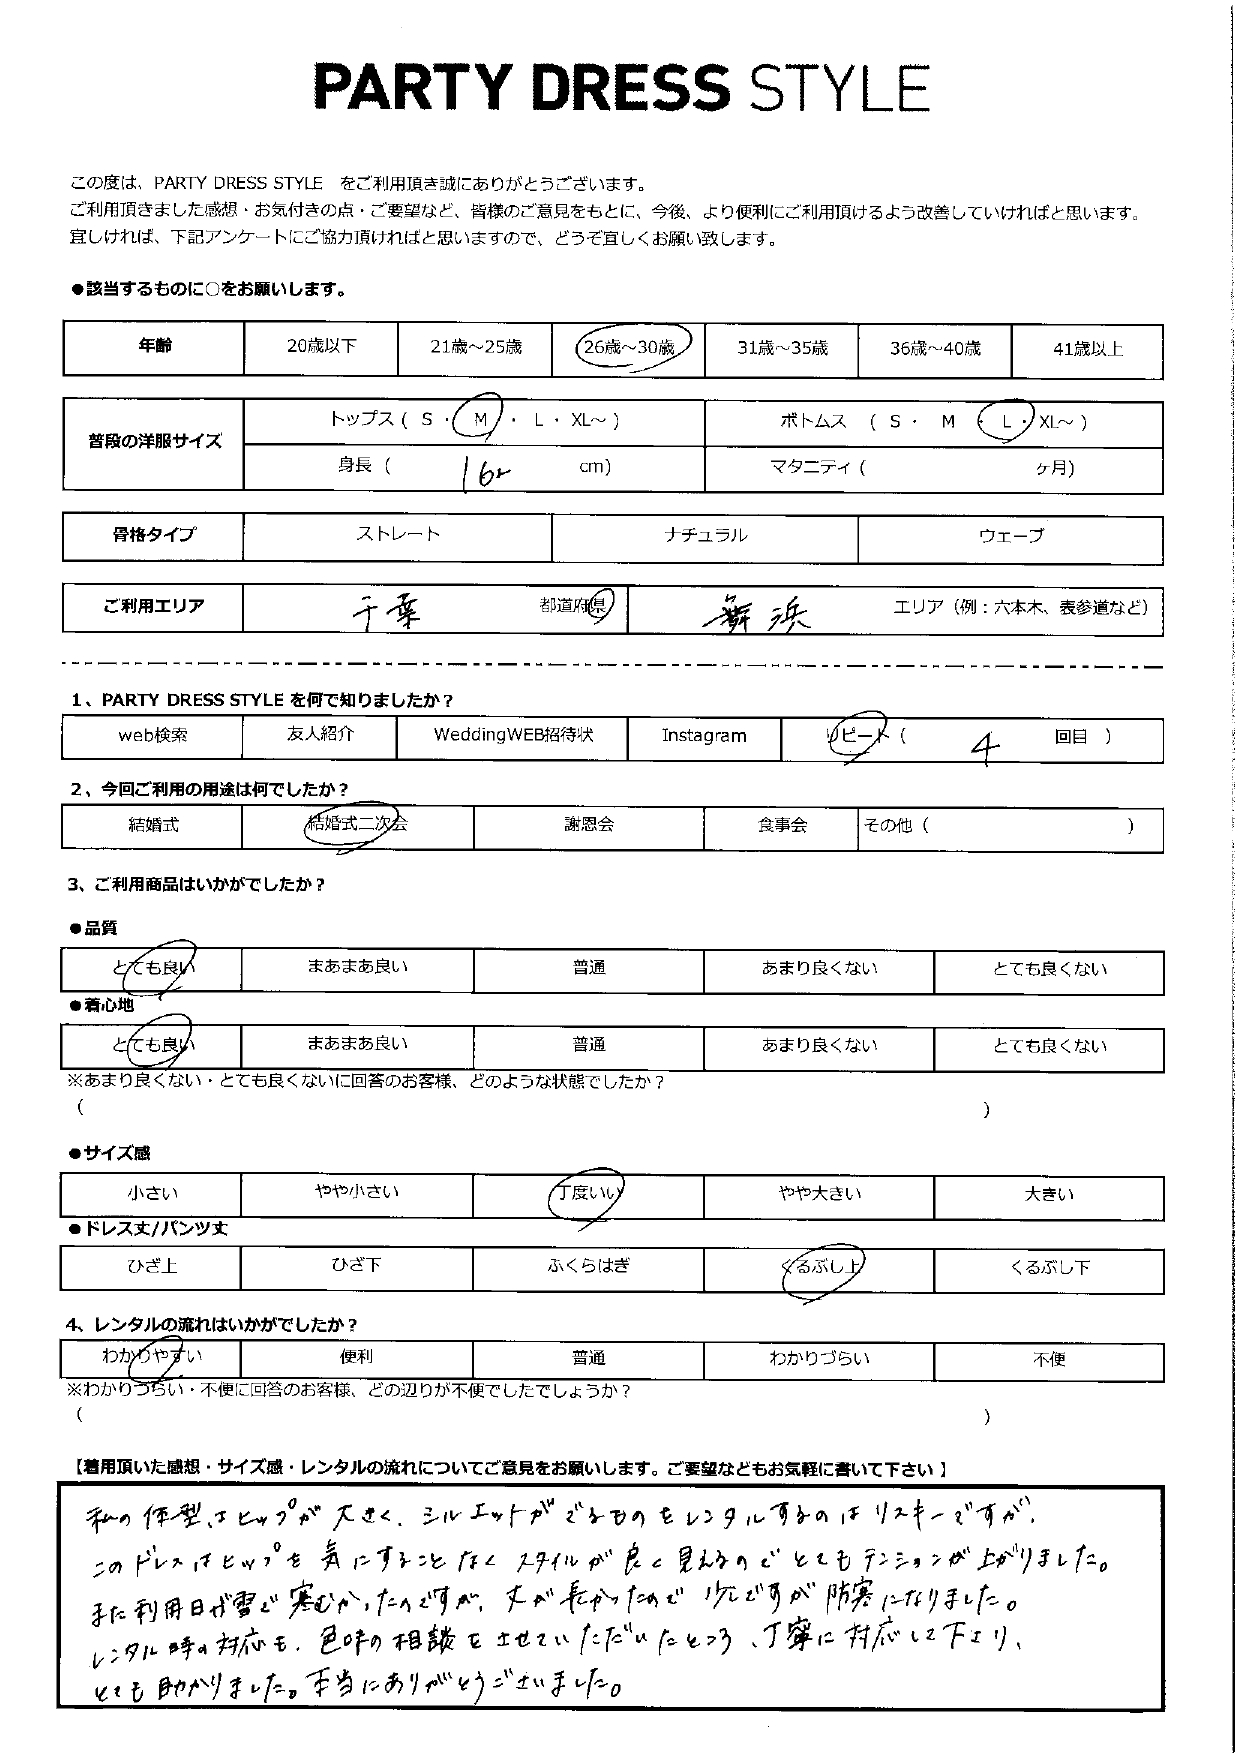 PARTY DRESS STYLE
この度は、PARTY DRESS STYLE をご利用頂き誠にありがとうございます。
ご利用頂きました感想・お気付きの点・ご要望など、皆様のご意見をもとに、今後、より便利にご利用頂けるよう改善していければと思います。
宜しければ、下記アンケートにご協力頂ければと思いますので、どうぞ宜しくお願い致します。
●該当するものに○をお願いします。
年齢 20歳以下 21歳～25歳 26歳～30歳 31歳～35歳 36歳～40歳 41歳以上
普段の洋服サイズ トップス ( S ・ M ・ L ・ XL～ ) ボトムス ( S ・ M ・ L ・ XL～ )
身長 ( 162 cm) マタニティ ( ヶ月)
骨格タイプ ストレート ナチュラル ウェーブ
ご利用エリア 千葉 都道府県 舞浜 エリア（例：六本木、表参道など）
1、PARTY DRESS STYLE を何で知りましたか？
web検索 友人紹介 WeddingWEB招待状 Instagram リピート ( 4 回目 )
2、今回ご利用の用途は何でしたか？
結婚式 結婚式二次会 謝恩会 食事会 その他 ( )
3、ご利用商品はいかがでしたか？
●品質
とても良い まあまあ良い 普通 あまり良くない とても良くない
●着心地
とても良い まあまあ良い 普通 あまり良くない とても良くない
※あまり良くない・とても良くないに回答のお客様、どのような状態でしたか？
( )
●サイズ感
小さい やや小さい 丁度いい やや大きい 大きい
●ドレス丈/パンツ丈
ひざ上 ひざ下 ふくらはぎ くるぶし上 くるぶし下
4、レンタルの流れはいかがでしたか？
わかりやすい 便利 普通 わかりづらい 不便
※わかりづらい・不便に回答のお客様、どの辺りが不便でしたでしょうか？
( )
【着用頂いた感想・サイズ感・レンタルの流れについてご意見をお願いします。ご要望などもお気軽に書いて下さい】
私の体型はヒップが大きく、シルエットがでるものをレンタルするのはリスキーですが、
このドレスはヒップを気にすることなくスタイルが良く見えるのでとてもテンションが上がりました。
また利用日が雪で寒むかったのですが、丈が長かったので少しですが防寒になりました。
レンタル時の対応も、色味の相談をさせていただいたところ、丁寧に対応して下さり、
とても助かりました。本当にありがとうございました。